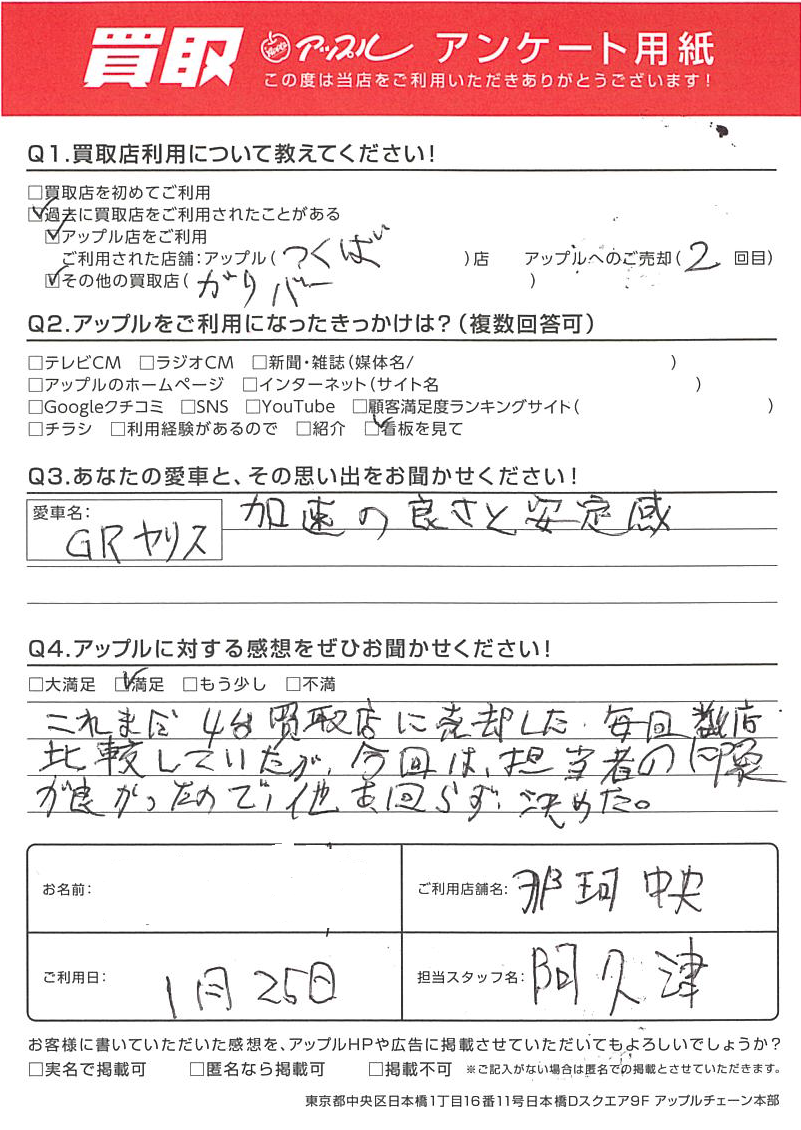 買取 アップル アンケート用紙
この度は当店をご利用いただきありがとうございます!
Q1.買取店利用について教えてください!
□買取店を初めてご利用
☑過去に買取店をご利用されたことがある
☑アップル店をご利用
ご利用された店舗:アップル( つくば )店 アップルへのご売却( 2 回目)
☑その他の買取店( ガリバー )
Q2.アップルをご利用になったきっかけは?(複数回答可)
□テレビCM □ラジオCM □新聞・雑誌(媒体名/ )
□アップルのホームページ □インターネット(サイト名 )
□Googleクチコミ □SNS □YouTube □顧客満足度ランキングサイト( )
□チラシ □利用経験があるので □紹介 ☑看板を見て
Q3.あなたの愛車と、その思い出をお聞かせください!
愛車名: GRヤリス
加速の良さと安定感
Q4.アップルに対する感想をぜひお聞かせください!
□大満足 ☑満足 □もう少し □不満
これまで4台買取店に売却した。毎回数店
比較していたが、今回は、担当者の印象
が良かったので、他を回らず、決めた。
お名前:
ご利用店舗名: 那珂中央
ご利用日: 1月25日
担当スタッフ名: 阿久津
お客様に書いていただいた感想を、アップルHPや広告に掲載させていただいてもよろしいでしょうか?
□実名で掲載可 □匿名なら掲載可 □掲載不可 ※ご記入がない場合は匿名での掲載とさせていただきます。
東京都中央区日本橋1丁目16番11号日本橋Dスクエア9F アップルチェーン本部